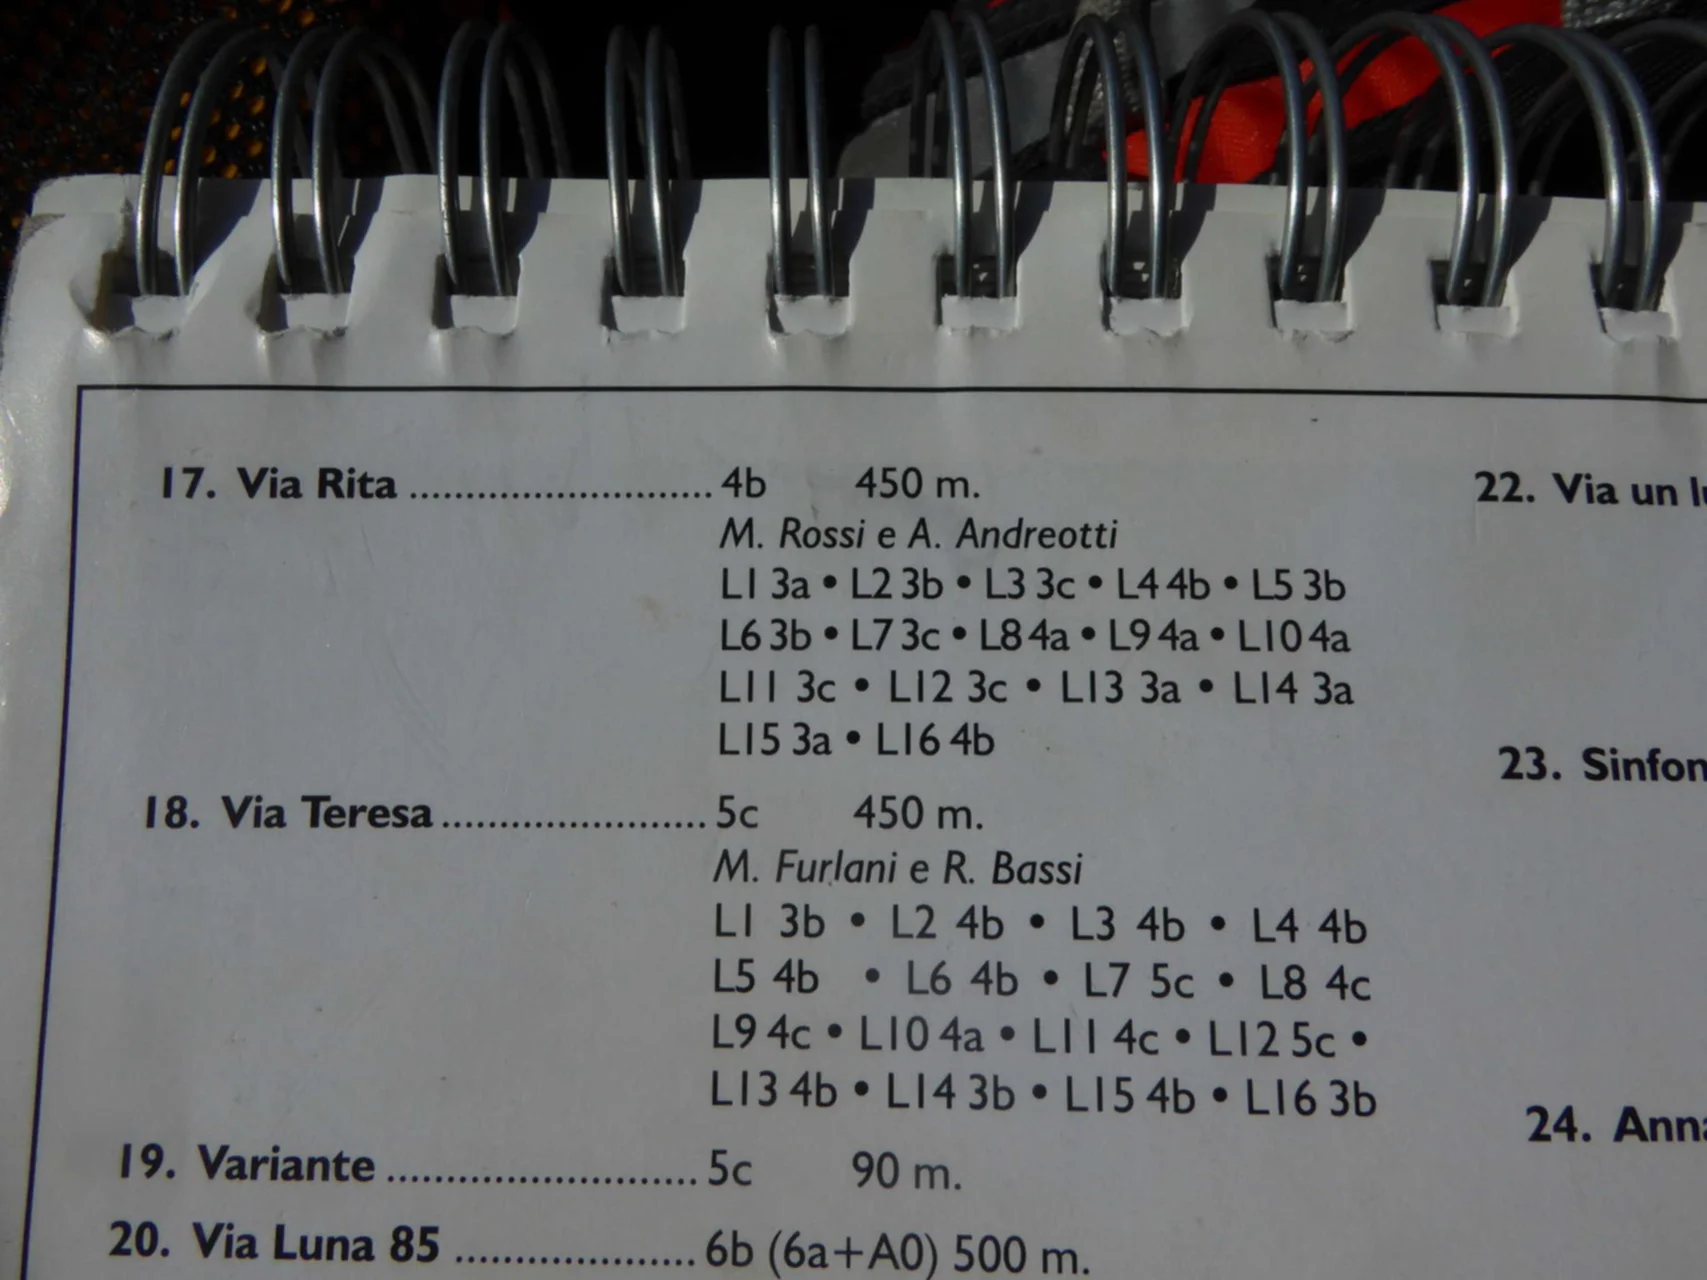 17. Via Rita .......................... 4b 450 m.
M. Rossi e A. Andreotti
L1 3a • L2 3b • L3 3c • L4 4b • L5 3b
L6 3b • L7 3c • L8 4a • L9 4a • L10 4a
L11 3c • L12 3c • L13 3a • L14 3a
L15 3a • L16 4b
18. Via Teresa ....................... 5c 450 m.
M. Furlani e R. Bassi
L1 3b • L2 4b • L3 4b • L4 4b
L5 4b • L6 4b • L7 5c • L8 4c
L9 4c • L10 4a • L11 4c • L12 5c •
L13 4b • L14 3b • L15 4b • L16 3b
19. Variante ........................... 5c 90 m.
20. Via Luna 85 ..................... 6b (6a+A0) 500 m.
22. Via un
23.
24.